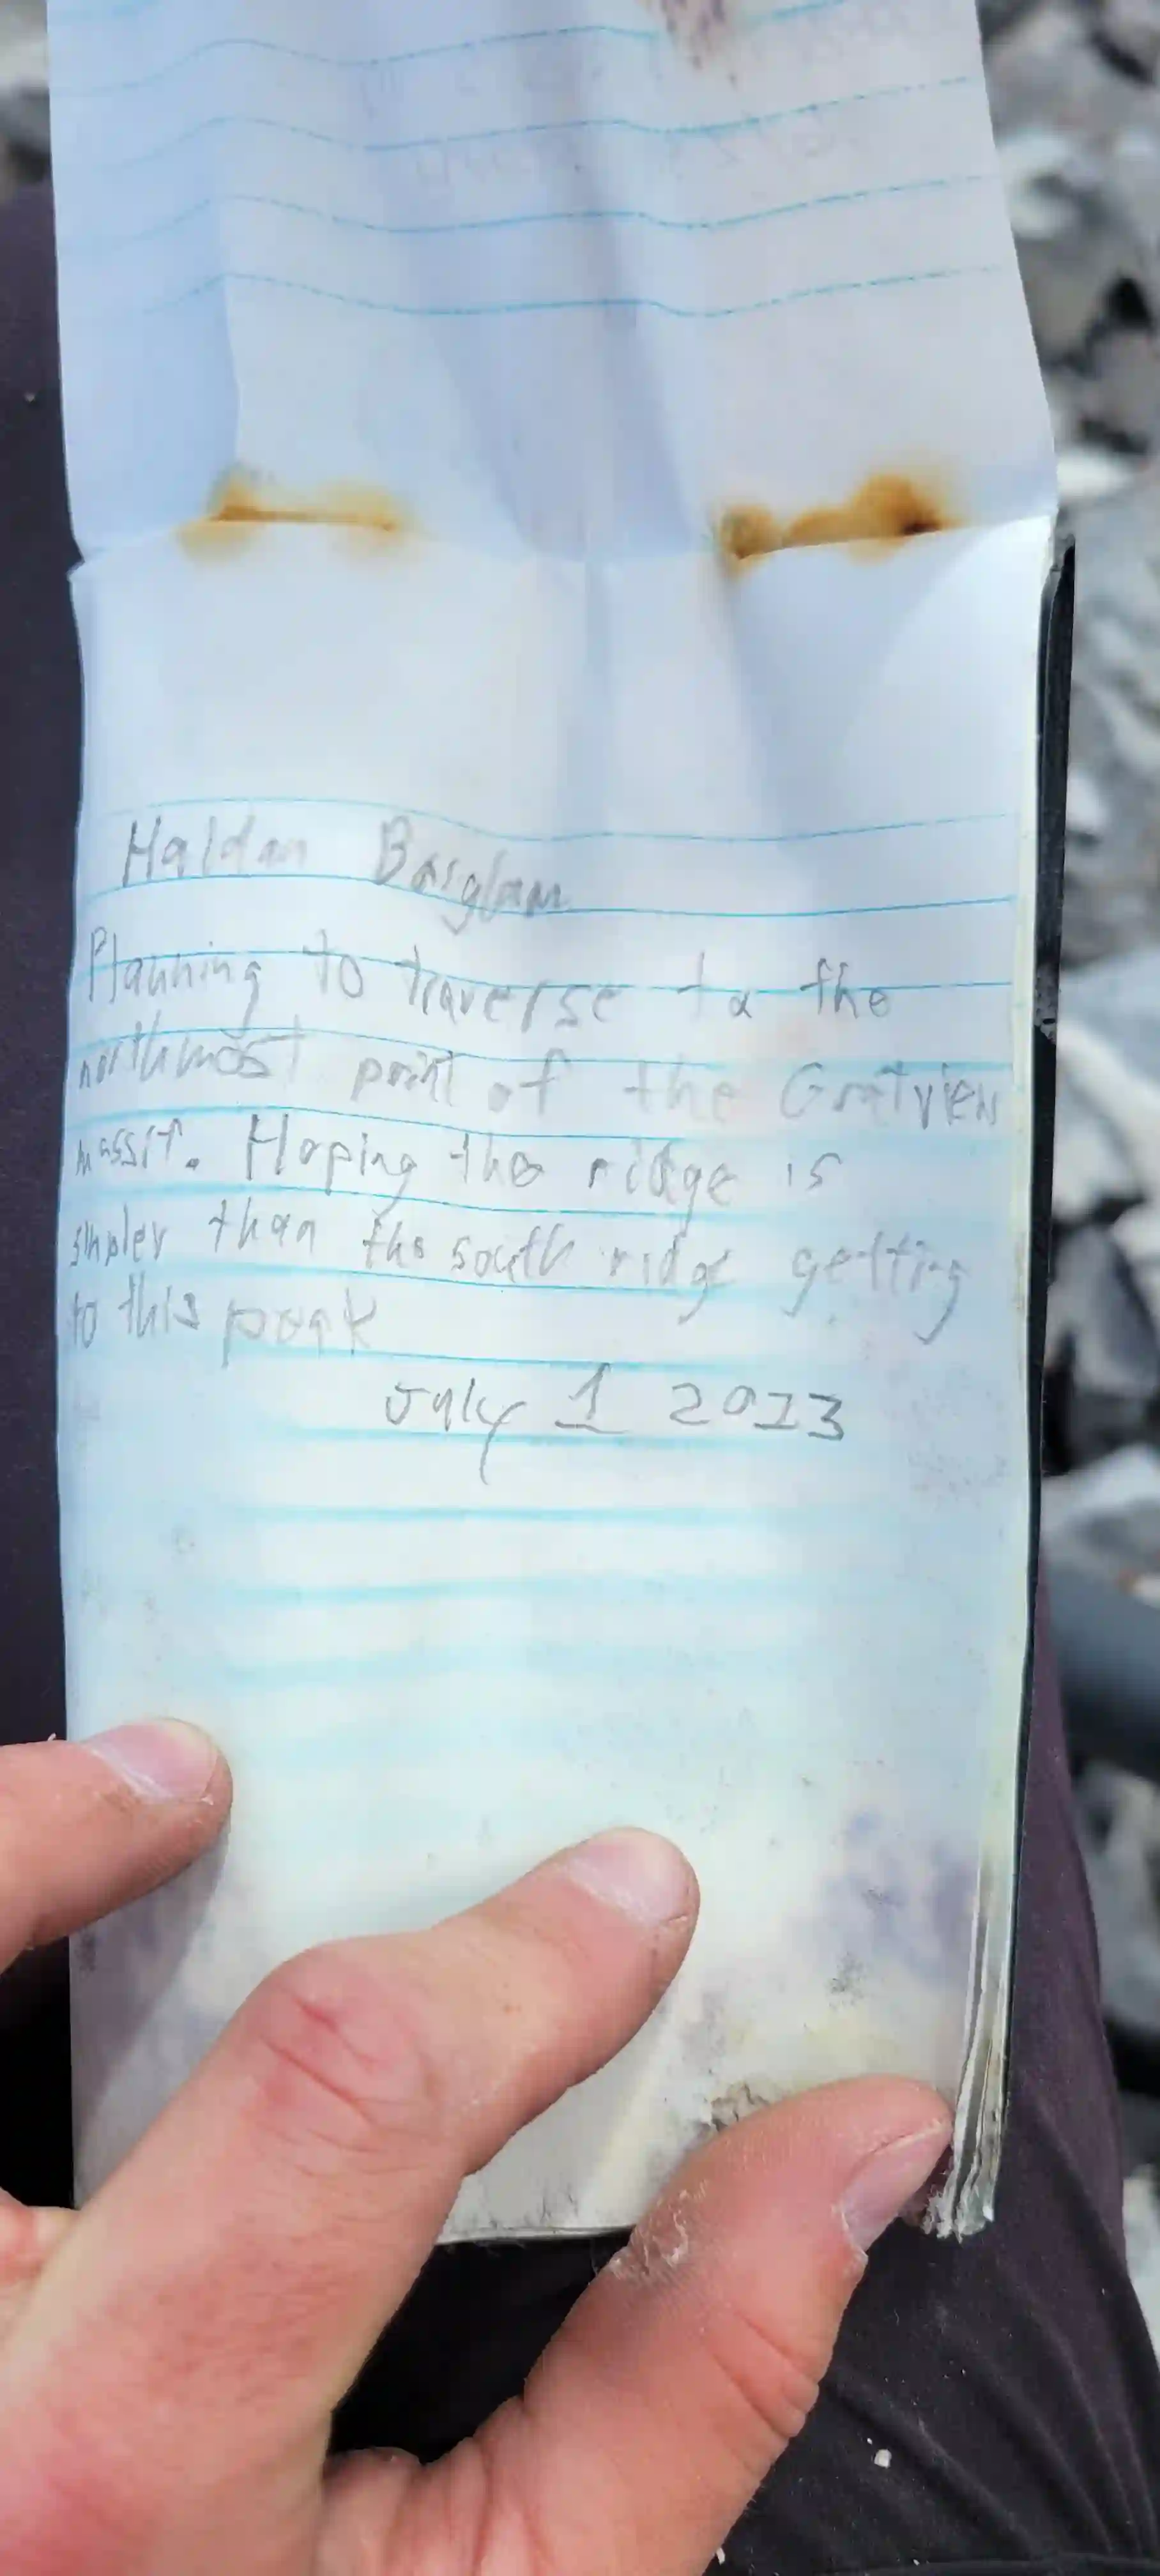 Haldan
Planning to traverse to the
northmost point of the Gratview
massif. Hoping the ridge is
simpler than the south ridge getting
to this peak
July 1 2013